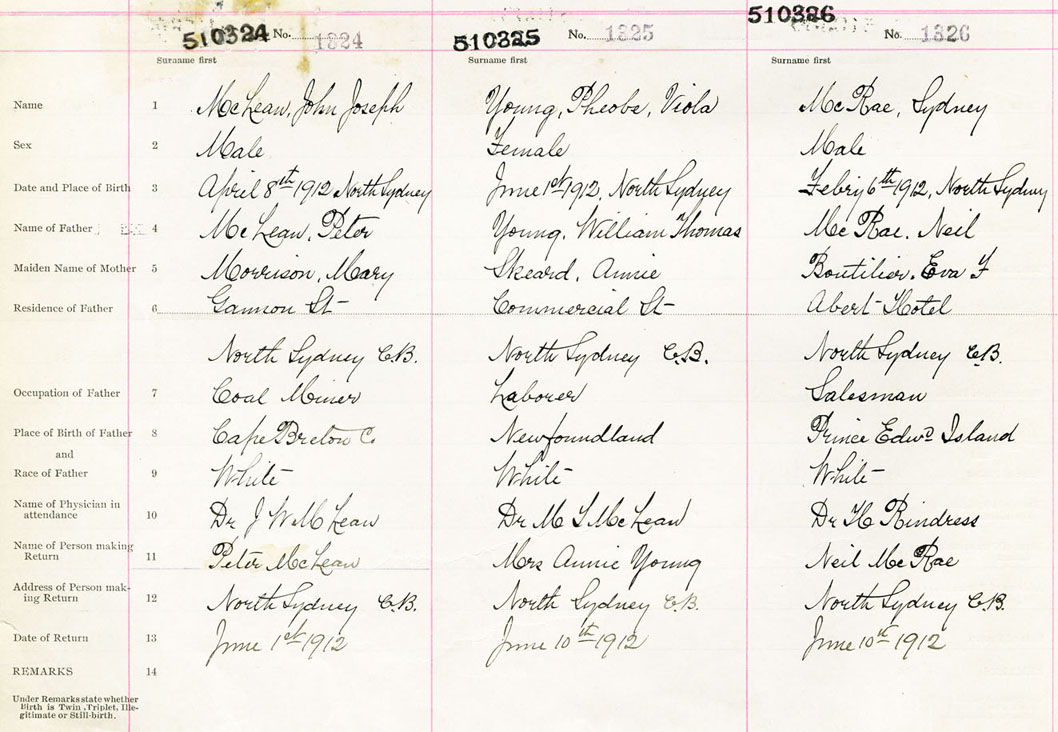 510324 No. 1324 510325 No. 1325 510326 No. 1326
Surname first Surname first Surname first
Name 1 McLean, John Joseph Young, Pheobe, Viola McRae, Sydney
Sex 2 Male Female Male
Date and Place of Birth 3 April 8th 1912 North Sydney June 1st 1912, North Sydney Febry 6th 1912, North Sydney
Name of Father 4 McLean, Peter Young, William Thomas McRae, Neil
Maiden Name of Mother 5 Morrison, Mary Skeard, Annie Boutilier, Eva F
Residence of Father 6 Gannon St Commercial St Abert Hotel
North Sydney C.B. North Sydney C.B. North Sydney C.B.
Occupation of Father 7 Coal Miner Laborer Salesman
Place of Birth of Father 8 Cape Breton C. Newfoundland Prince Edwd Island
and
Race of Father 9 White White White
Name of Physician in
attendance 10 Dr J W McLean Dr M L McLean Dr H Rindress
Name of Person making
Return 11 Peter McLean Mrs Annie Young Neil McRae
Address of Person mak-
ing Return 12 North Sydney C.B. North Sydney C.B. North Sydney C.B.
Date of Return 13 June 1st 1912 June 10th 1912 June 10th 1912
REMARKS 14
Under Remarks state whether
Birth is Twin, Triplet, Ille-
gitimate or Still-birth.